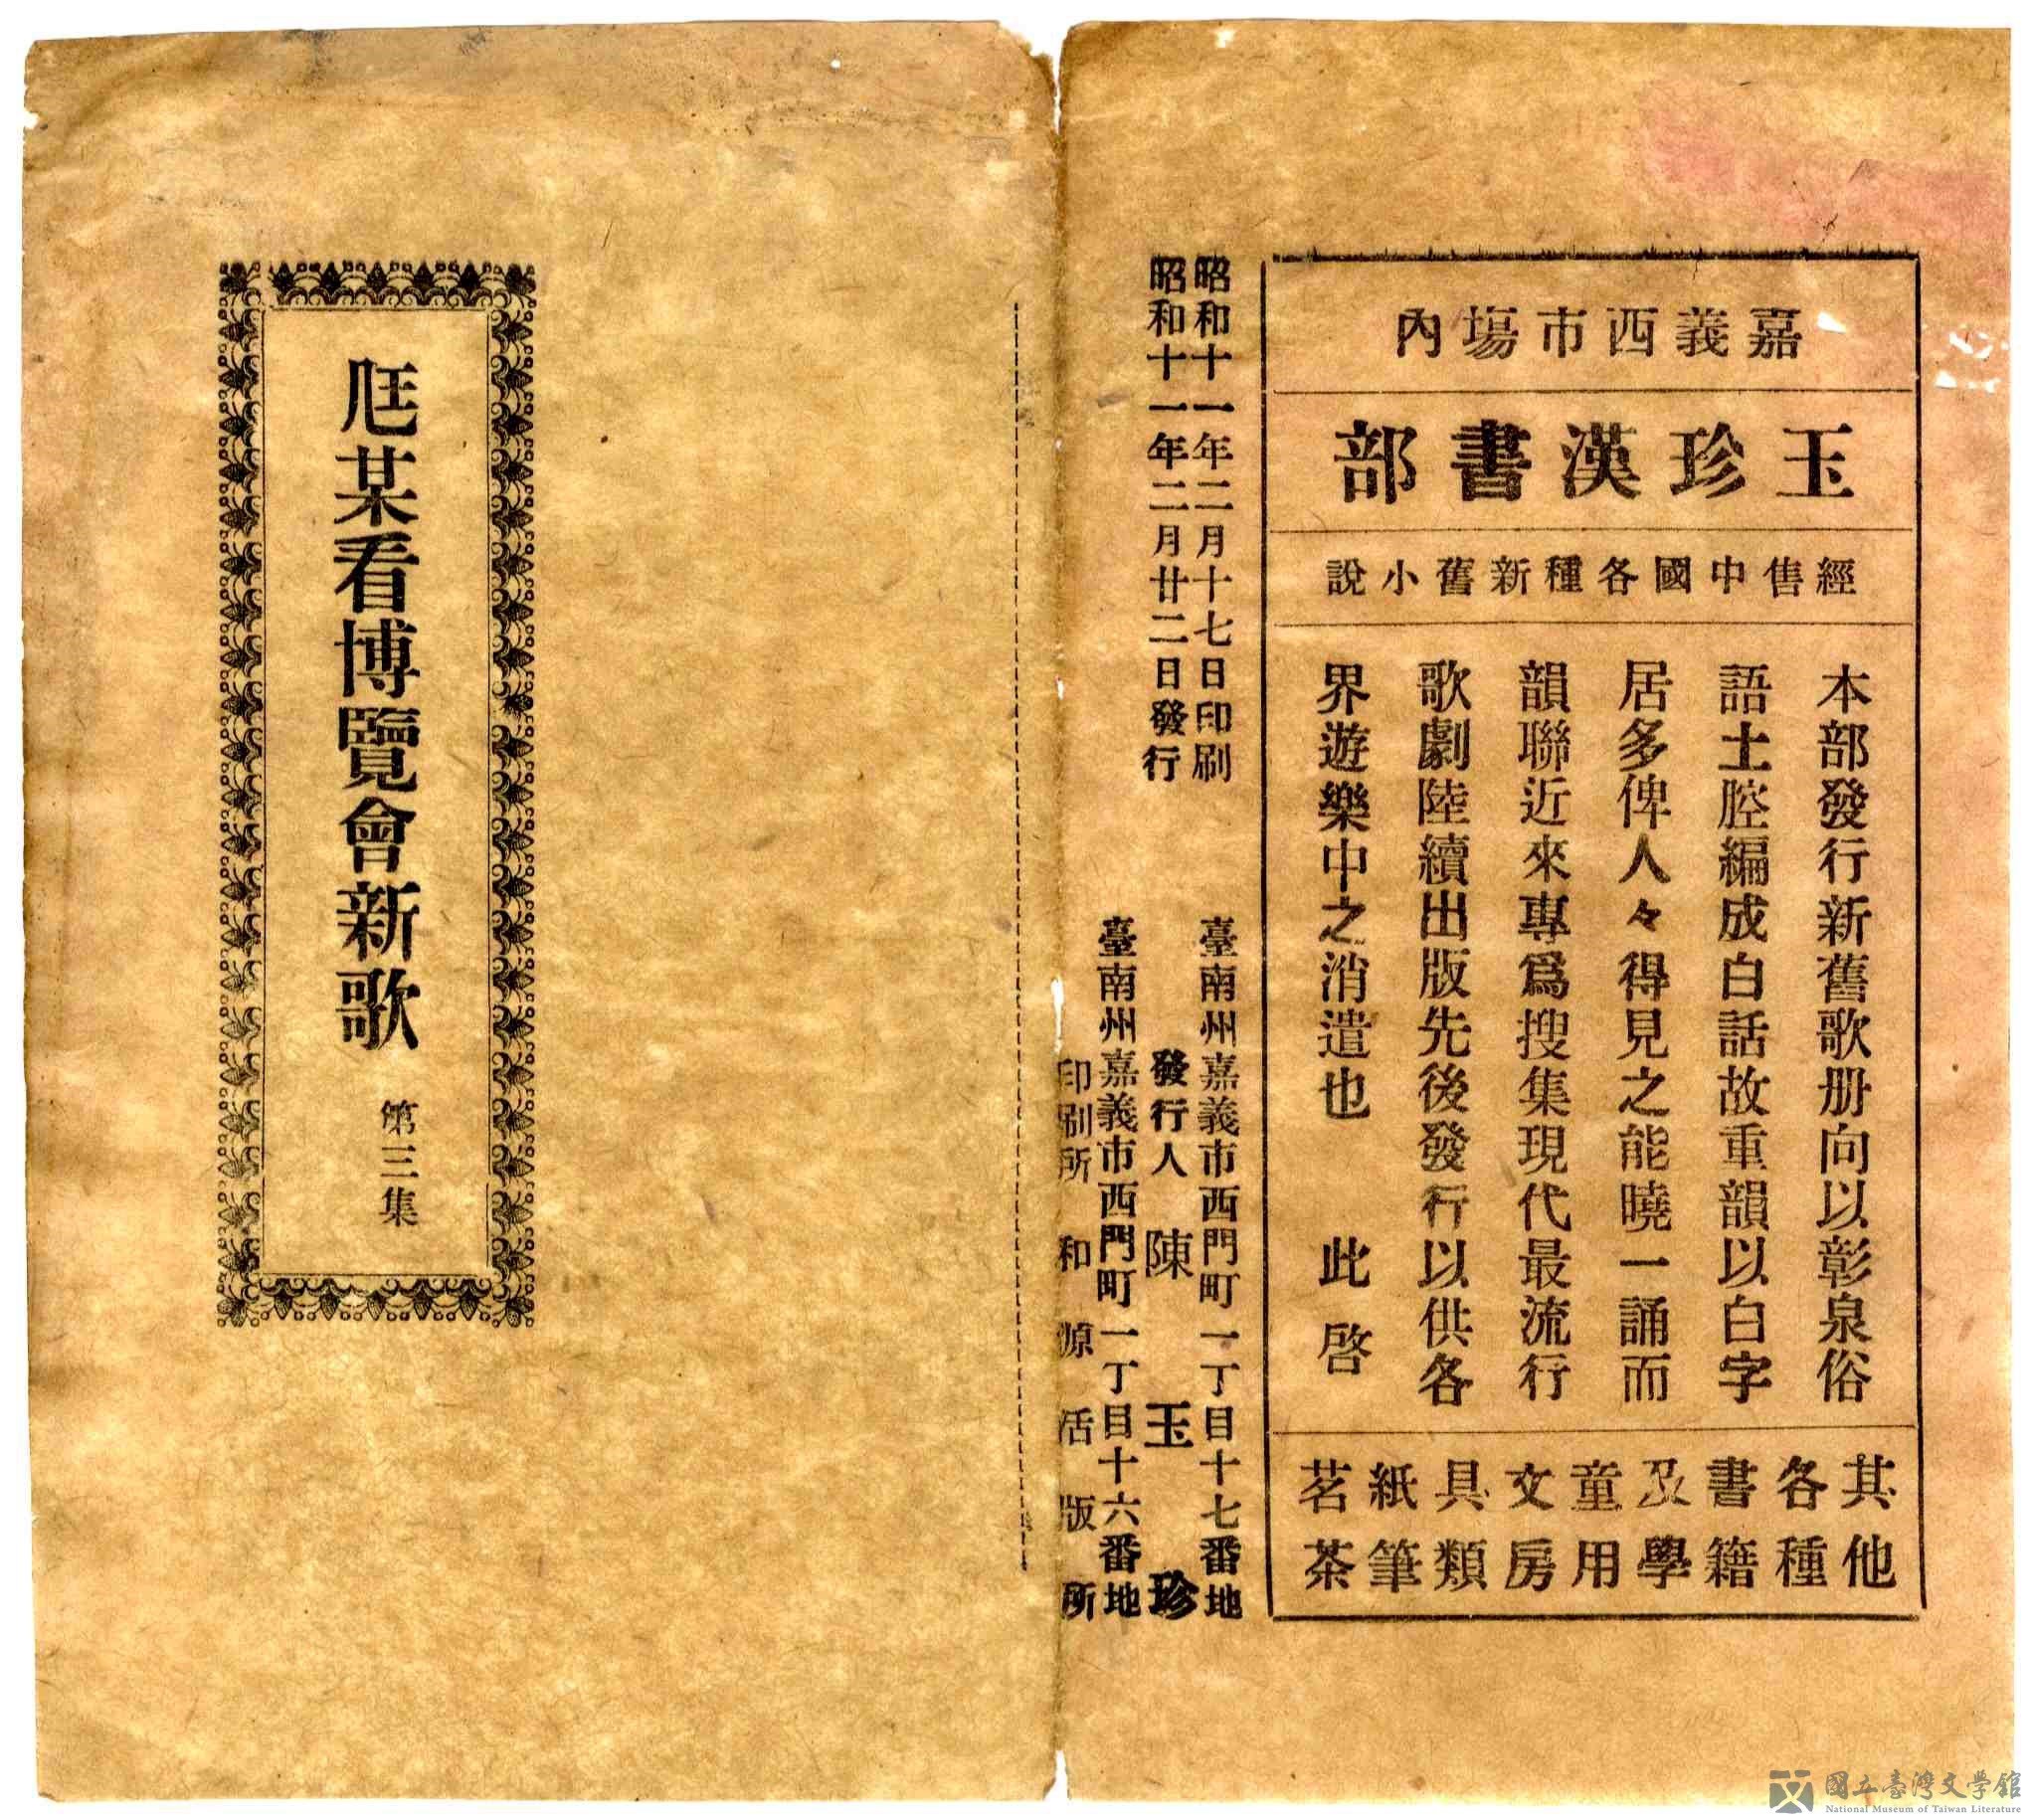 嘉義西市場內
玉珍漢書部
經售中國各種新舊小說
本部發行新舊歌册向以彰泉俗
語土腔編成白話故重韻以白字
居多俾人々得見之能曉一誦而
韻聯近來專爲搜集現代最流行
歌劇陸續出版先後發行以供各
界遊樂中之消遣也 此啓
其他
各種
書籍
及學
童用
文房
具類
紙筆
茗茶
昭和十一年二月十七日印刷
昭和十一年二月廿二日發行
臺南州嘉義市西門町一丁目十七番地
發行人 陳玉珍
臺南州嘉義市西門町一丁目十六番地
印刷所 和源活版所
尪某看博覽會新歌
第三集
國立臺灣文學館
National Museum of Taiwan Literature